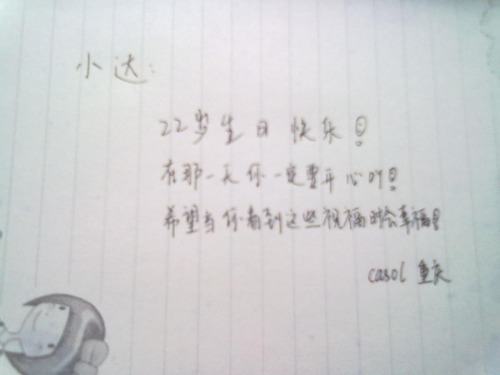 小达：
22岁生日快乐！
在那一天你一定要开心吖！
希望当你看到这些祝福时会幸福！
casol 重庆